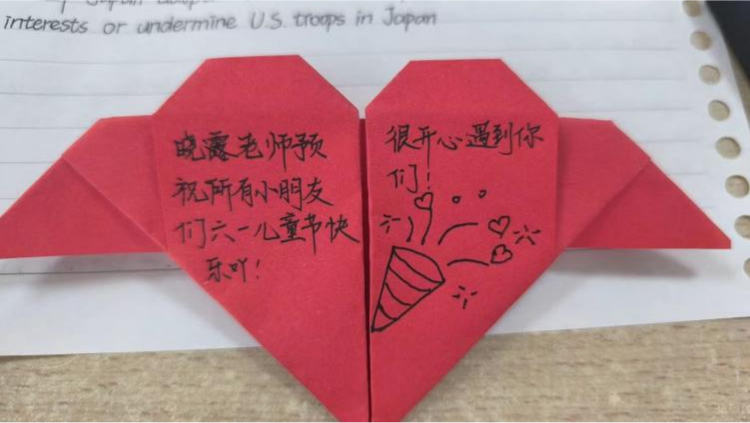 interests or undermine U.S. troops in Japan
晓露老师预
祝所有小朋友
们六一儿童节快
乐吖！
很开心遇到你
们！